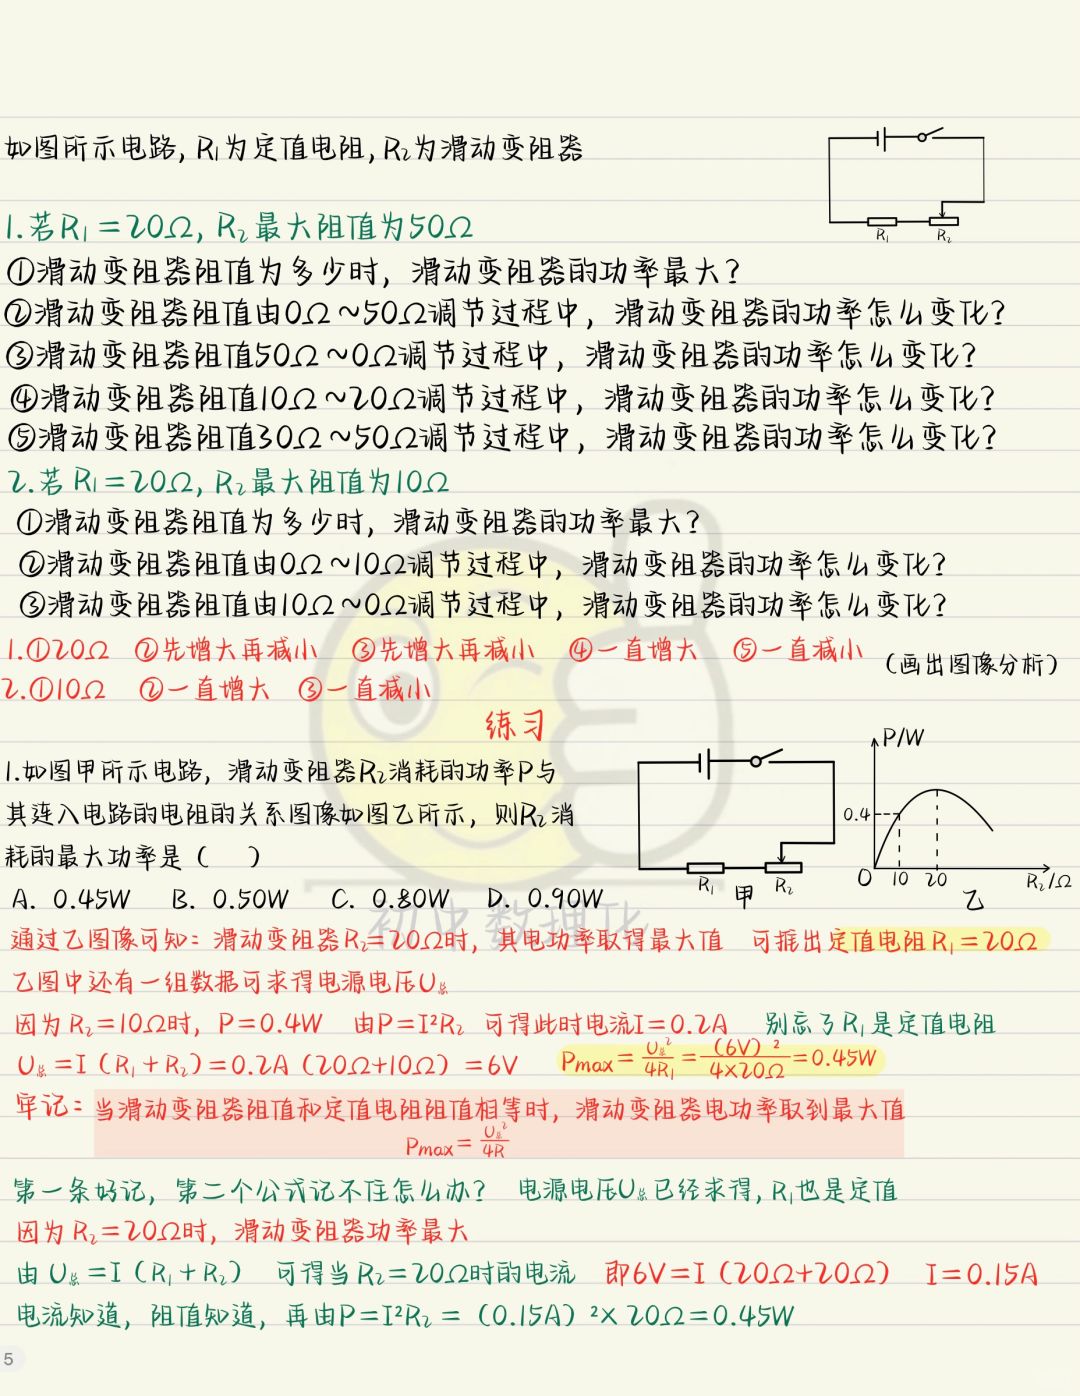 如图所示电路, R₁为定值电阻, R₂为滑动变阻器
R₁ R₂
1.若R₁=20Ω, R₂最大阻值为50Ω
①滑动变阻器阻值为多少时, 滑动变阻器的功率最大?
②滑动变阻器阻值由0Ω~50Ω调节过程中, 滑动变阻器的功率怎么变化?
③滑动变阻器阻值50Ω~0Ω调节过程中, 滑动变阻器的功率怎么变化?
④滑动变阻器阻值10Ω~20Ω调节过程中, 滑动变阻器的功率怎么变化?
⑤滑动变阻器阻值30Ω~50Ω调节过程中, 滑动变阻器的功率怎么变化?
2.若R₁=20Ω, R₂最大阻值为10Ω
①滑动变阻器阻值为多少时, 滑动变阻器的功率最大?
②滑动变阻器阻值由0Ω~10Ω调节过程中, 滑动变阻器的功率怎么变化?
③滑动变阻器阻值由10Ω~0Ω调节过程中, 滑动变阻器的功率怎么变化?
1.①20Ω ②先增大再减小 ③先增大再减小 ④一直增大 ⑤一直减小 (画出图像分析)
2.①10Ω ②一直增大 ③一直减小
练习
1.如图甲所示电路, 滑动变阻器R₂消耗的功率P与
其连入电路的电阻的关系图像如图乙所示, 则R₂消
耗的最大功率是( )
A. 0.45W B. 0.50W C. 0.80W D. 0.90W
R₁ 甲 R₂
P/W
0.4
0 10 20 乙 R₂/Ω
初中数理化
通过乙图像可知: 滑动变阻器R₂=20Ω时, 其电功率取得最大值 可推出定值电阻R₁=20Ω
乙图中还有一组数据可求得电源电压U总
因为R₂=10Ω时, P=0.4W 由P=I²R₂ 可得此时电流I=0.2A 别忘了R₁是定值电阻
U总=I(R₁+R₂)=0.2A(20Ω+10Ω)=6V Pmax=U总²/4R₁=(6V)²/4×20Ω=0.45W
牢记: 当滑动变阻器阻值和定值电阻阻值相等时, 滑动变阻器电功率取到最大值
Pmax=U总²/4R
第一条好记, 第二个公式记不住怎么办? 电源电压U总已经求得, R₁也是定值
因为R₂=20Ω时, 滑动变阻器功率最大
由U总=I(R₁+R₂) 可得当R₂=20Ω时的电流 即6V=I(20Ω+20Ω) I=0.15A
电流知道, 阻值知道, 再由P=I²R₂=(0.15A)²×20Ω=0.45W
5